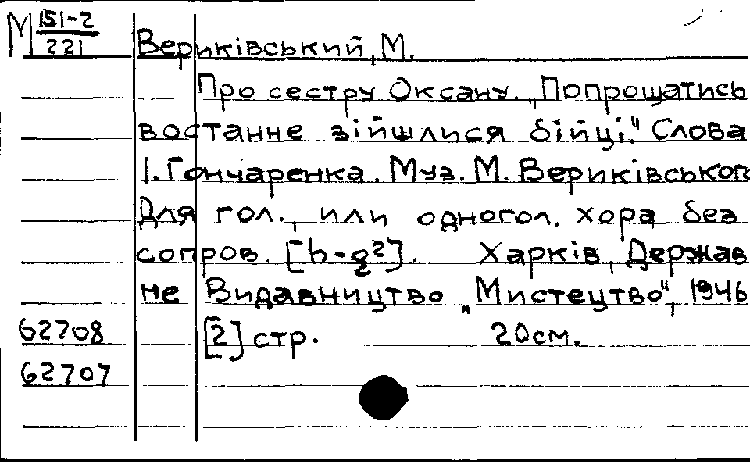 М 151-2
221
Вериківський, М.
Про сестру Оксану. „Попрощатись
востанне зійшлися бійці." Слова
І. Гончаренка. Муз. М. Вериківського
Для гол., или одногол. хора без
сопров. [h-g²]. Харків, Держав
не Видавництво „Мистецтво", 1946
62708 [2] стр. 20см.
62707